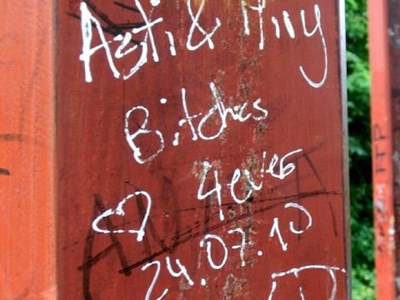 Asti & Amy
Bitches
♡ 4ever
24.07.10